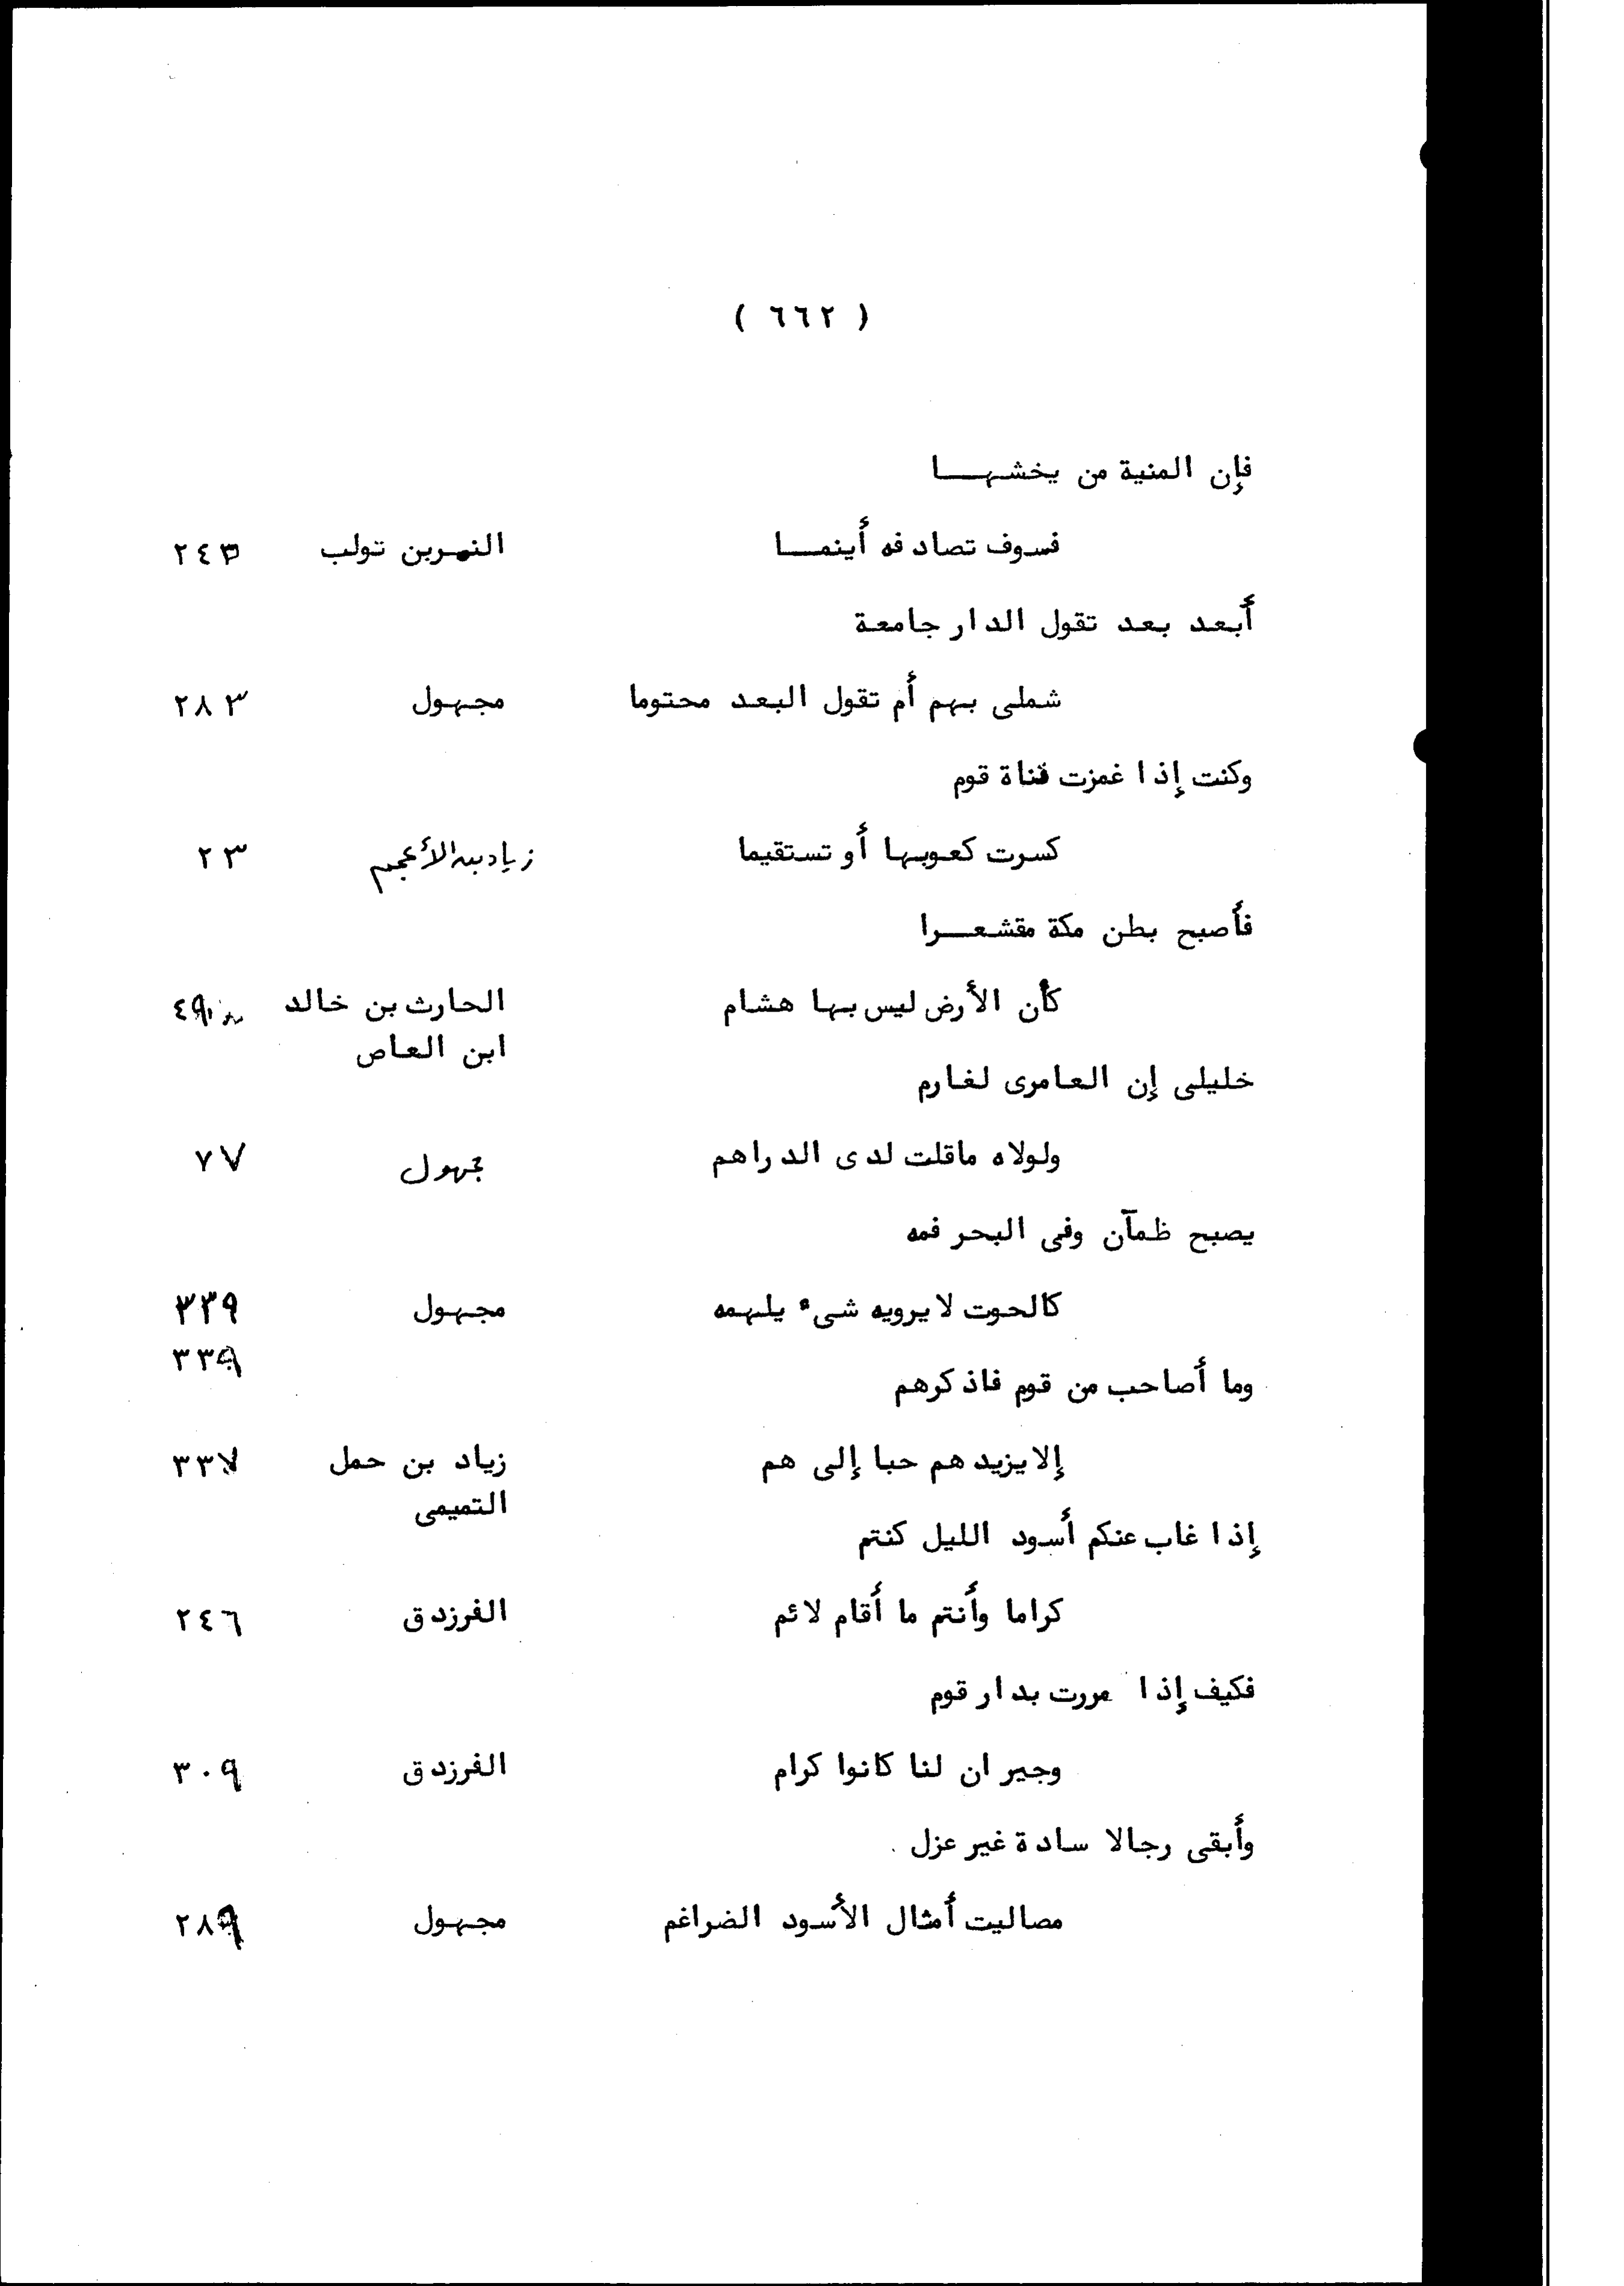 ( ٦٦٢ )
فإن المنية من يخشهـــا
فسوف تصادفه أينمــا النمربن تولب ٢٤٣
أبعد بعد تقول الدار جامعة
شملى بهم أم تقول البعد محتوما مجهول ٢٨٣
وكنت إذا غمزت قناة قوم
كسرت كعوبها أو تستقيما زياد بن الأعجم ٢٣
فأصبح بطن مكة مقشعـــرا
كأن الأرض ليس بها هشام الحارث بن خالد
ابن العاص
خليلى إن العامرى لغارم
ولولاه ماقلت لدى الدراهم مجهول ٧٧
يصبح ظمآن وفى البحر فمه
كالحوت لا يرويه شىء يلهمه مجهول ٣٣٩
٣٣٩
وما أصاحب من قوم فاذكرهم
إلا يزيدهم حبا إلى هم زياد بن حمل
التميمى
إذا غاب عنكم أسود الليل كنتم
كراما وأنتم ما أقام لائم الفرزدق ٢٤٦
فكيف إذا مررت بدار قوم
وجيران لنا كانوا كرام الفرزدق ٣٠٩
وأبقى رجالا سادة غير عزل
مصاليت أمثال الأسود الضراغم مجهول ٢٨٩